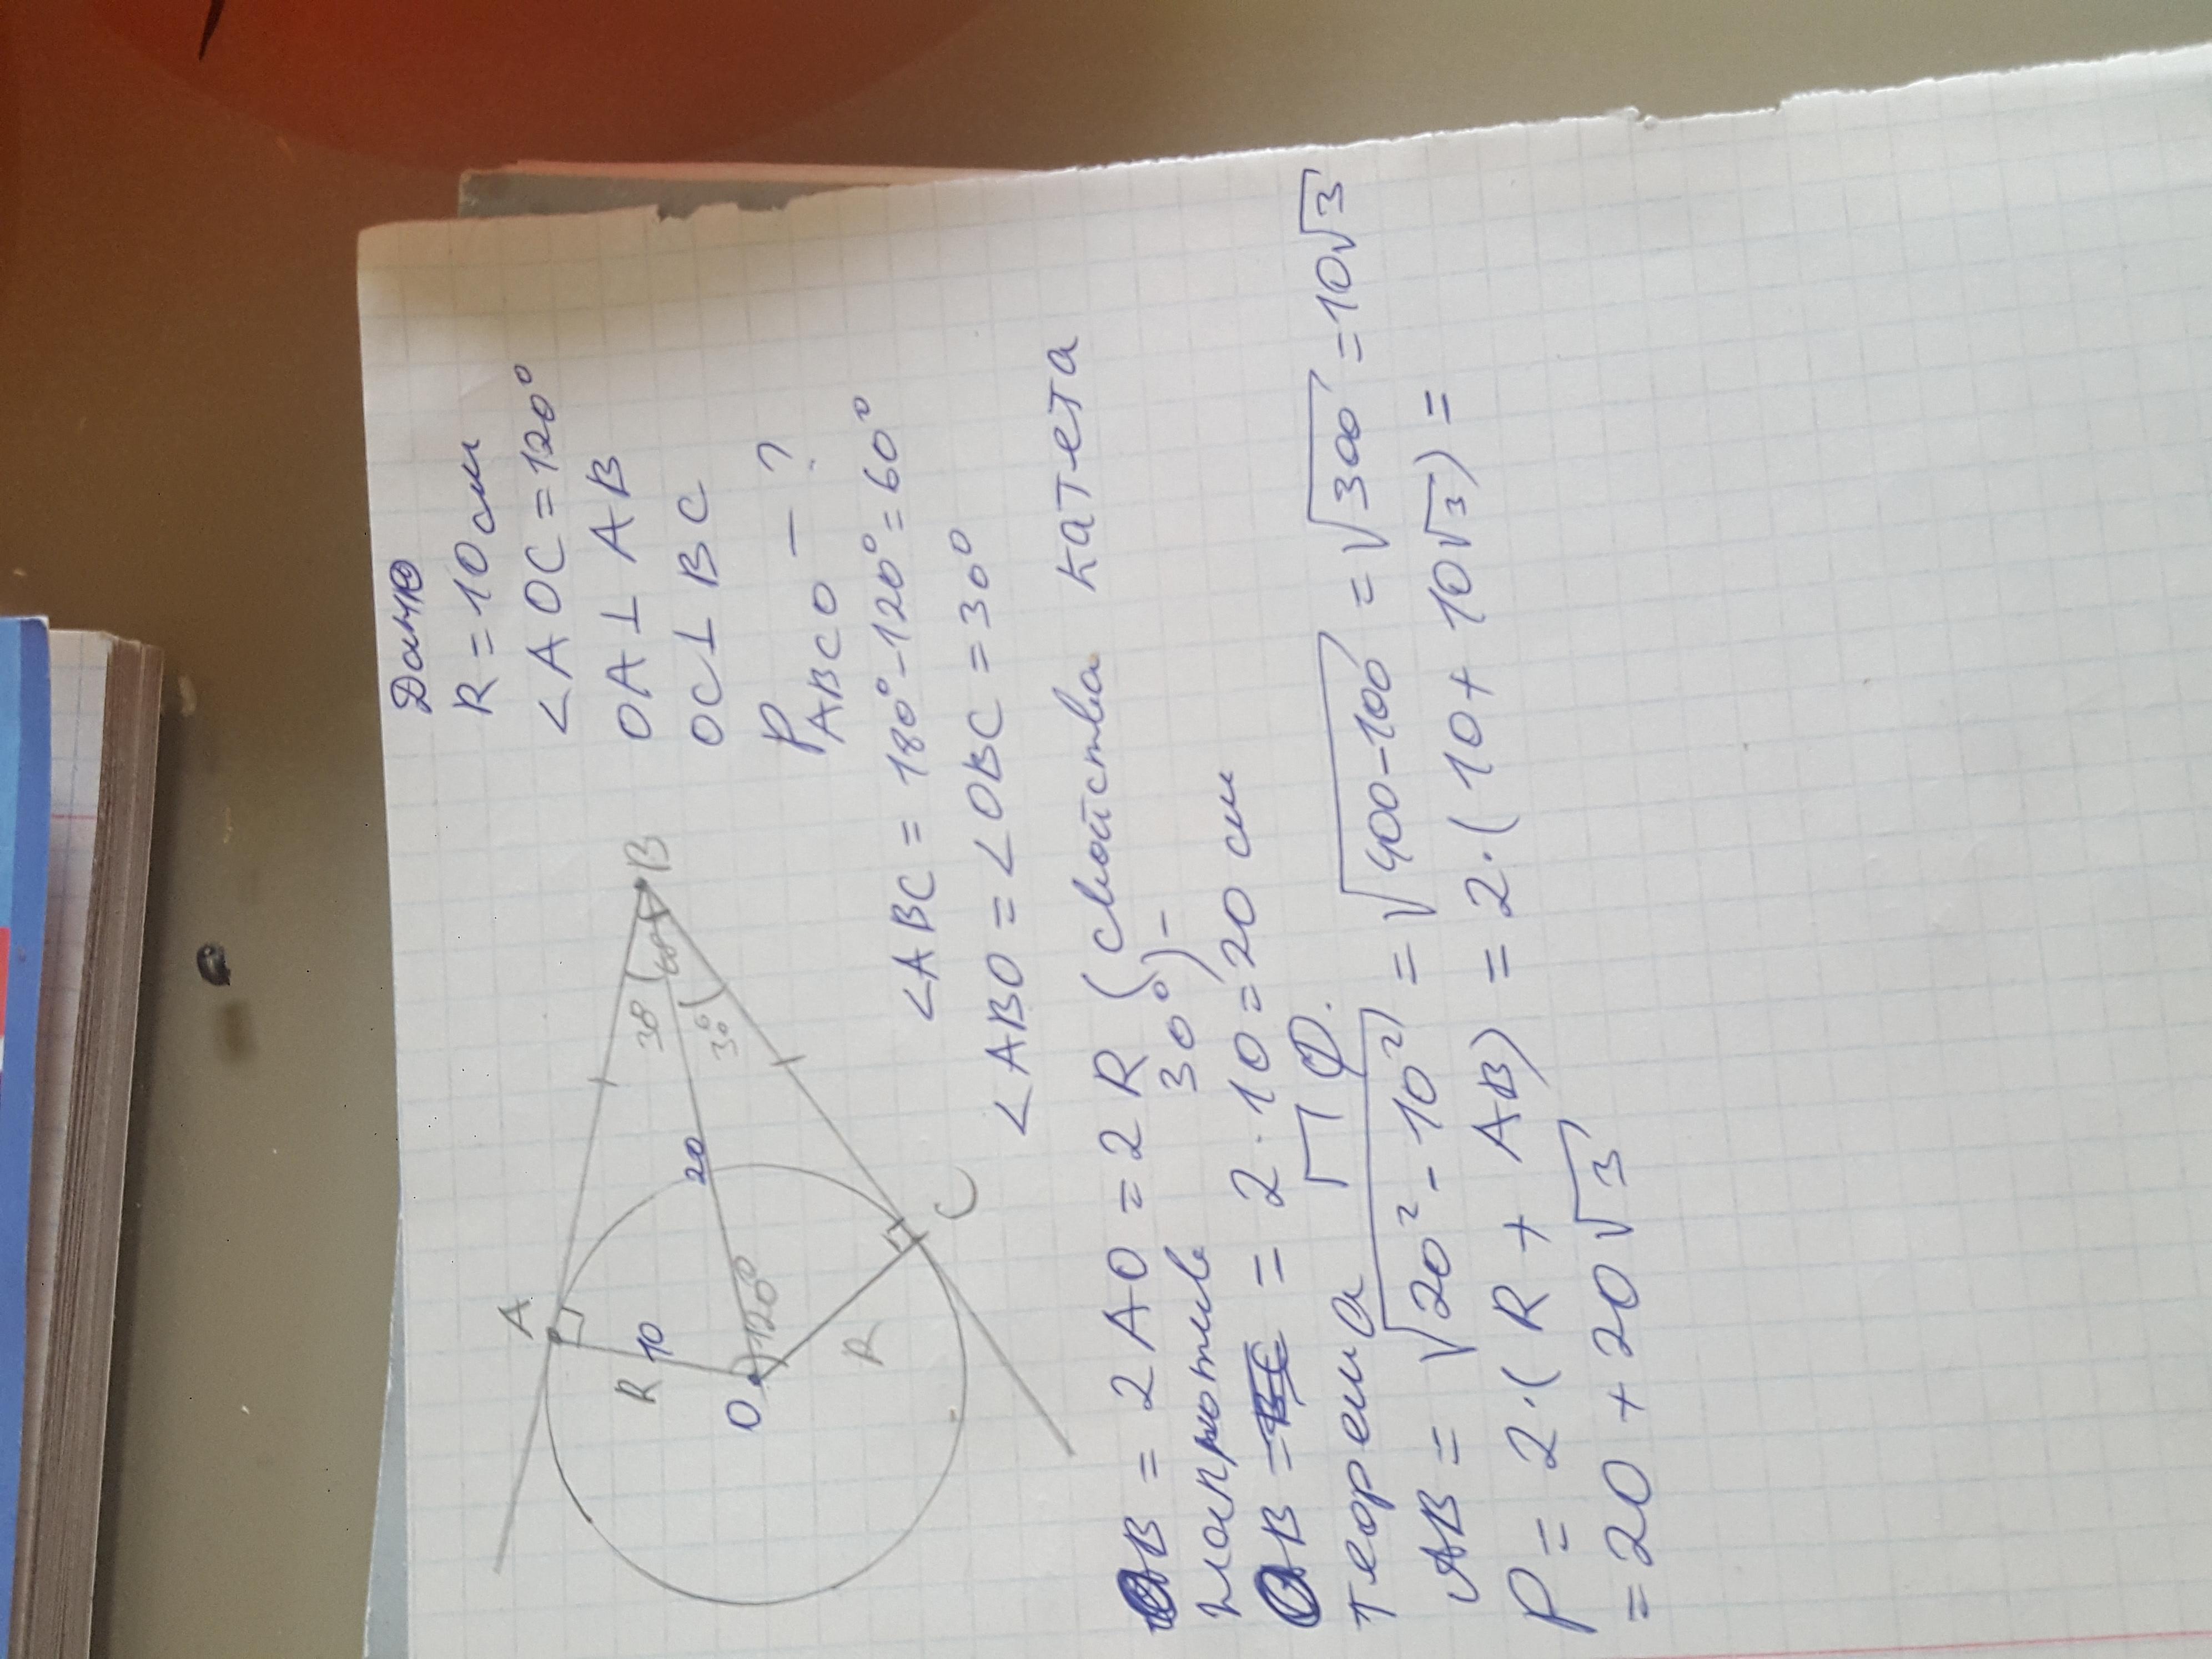 Дано
R = 10 см
∠AOC = 120°
OA ⊥ AB
OC ⊥ BC
P ABCO - ?
A
B
C
O
R
10
R
20
120°
30
30°
60°
∠ABC = 180° - 120° = 60°
∠ABO = ∠OBC = 30°
OB = 2AO = 2R (свойства катета
напротив 30°) -
OB = = 2 · 10 = 20 см
теорема ПФ.
AB = √20² - 10² = √400-100 = √300 = 10√3
P = 2·(R + AB) = 2·(10 + 10√3) =
= 20 + 20√3